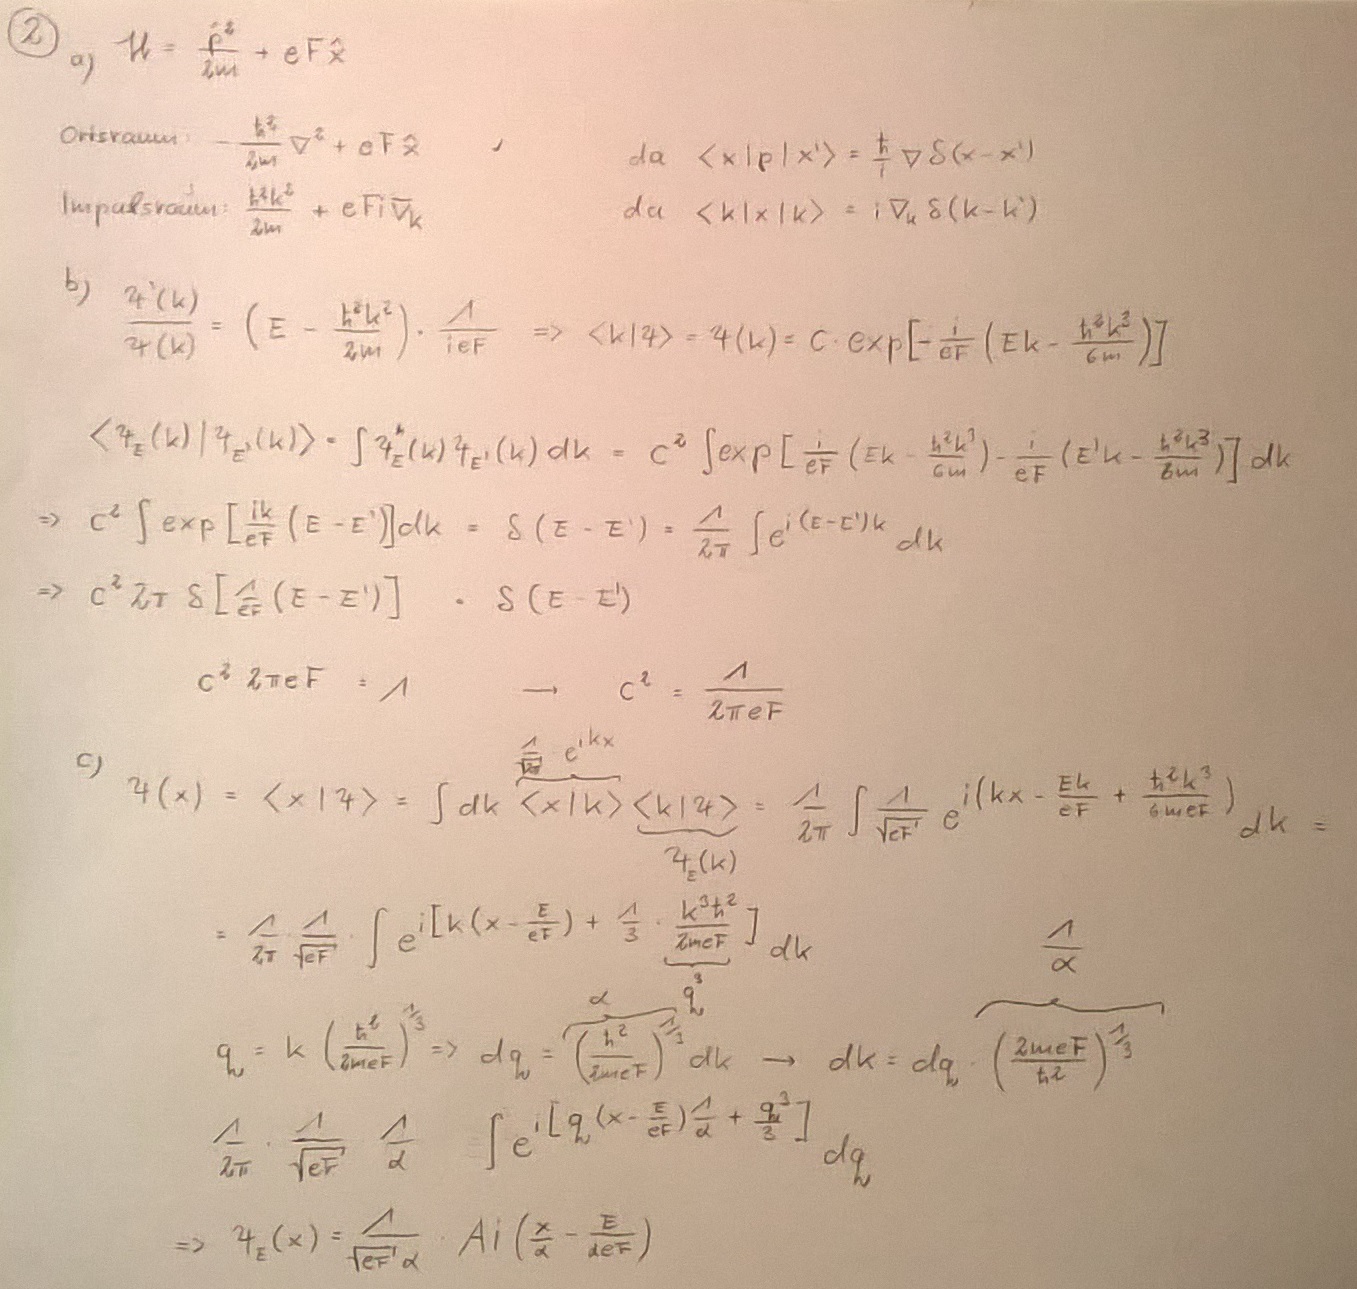 ② a) H = p̂²/2m + eFx̂
Ortsraum: -ħ²/2m ∇² + eFx̂ , da ⟨x|p|x'⟩ = ħ/i ∇ δ(x-x')
Impulsraum: ħ²k²/2m + eFi∇ₖ da ⟨k|x|k⟩ = i∇ₖ δ(k-k')
b) Ψ'(k)/Ψ(k) = (E - ħ²k²/2m) · 1/ieF => ⟨k|Ψ⟩ = Ψ(k) = C · exp[-i/eF (Ek - ħ²k³/6m)]
⟨Ψ_E(k)|Ψ_E'(k)⟩ = ∫Ψ_E*(k) Ψ_E'(k) dk = C² ∫exp[i/eF (Ek - ħ²k³/6m) - i/eF (E'k - ħ²k³/6m)] dk
=> C² ∫ exp[ik/eF (E-E')]dk = δ(E-E') = 1/2π ∫e^{i(E-E')k} dk
=> C² 2π δ[1/eF (E-E')] = δ(E-E')
C² 2πeF = 1 → C² = 1/2πeF
1/√2π · e^{ikx}
c) Ψ(x) = ⟨x|Ψ⟩ = ∫dk ⟨x|k⟩ ⟨k|Ψ⟩ = 1/2π ∫ 1/√eF e^{i(kx - Ek/eF + ħ²k³/6meF)} dk =
Ψ_E(k)
= 1/2π · 1/√eF · ∫e^{i[k(x - E/eF) + 1/3 · k³ħ²/2meF]} dk
q³
α
1/α
q = k (ħ²/2meF)^{1/3} => dq = (ħ²/2meF)^{1/3} dk → dk = dq · (2meF/ħ²)^{1/3}
1/2π · 1/√eF 1/α ∫e^{i[q(x - E/eF)1/α + q³/3]} dq
=> Ψ_E(x) = 1/√eF α · Ai(x/α - E/αeF)